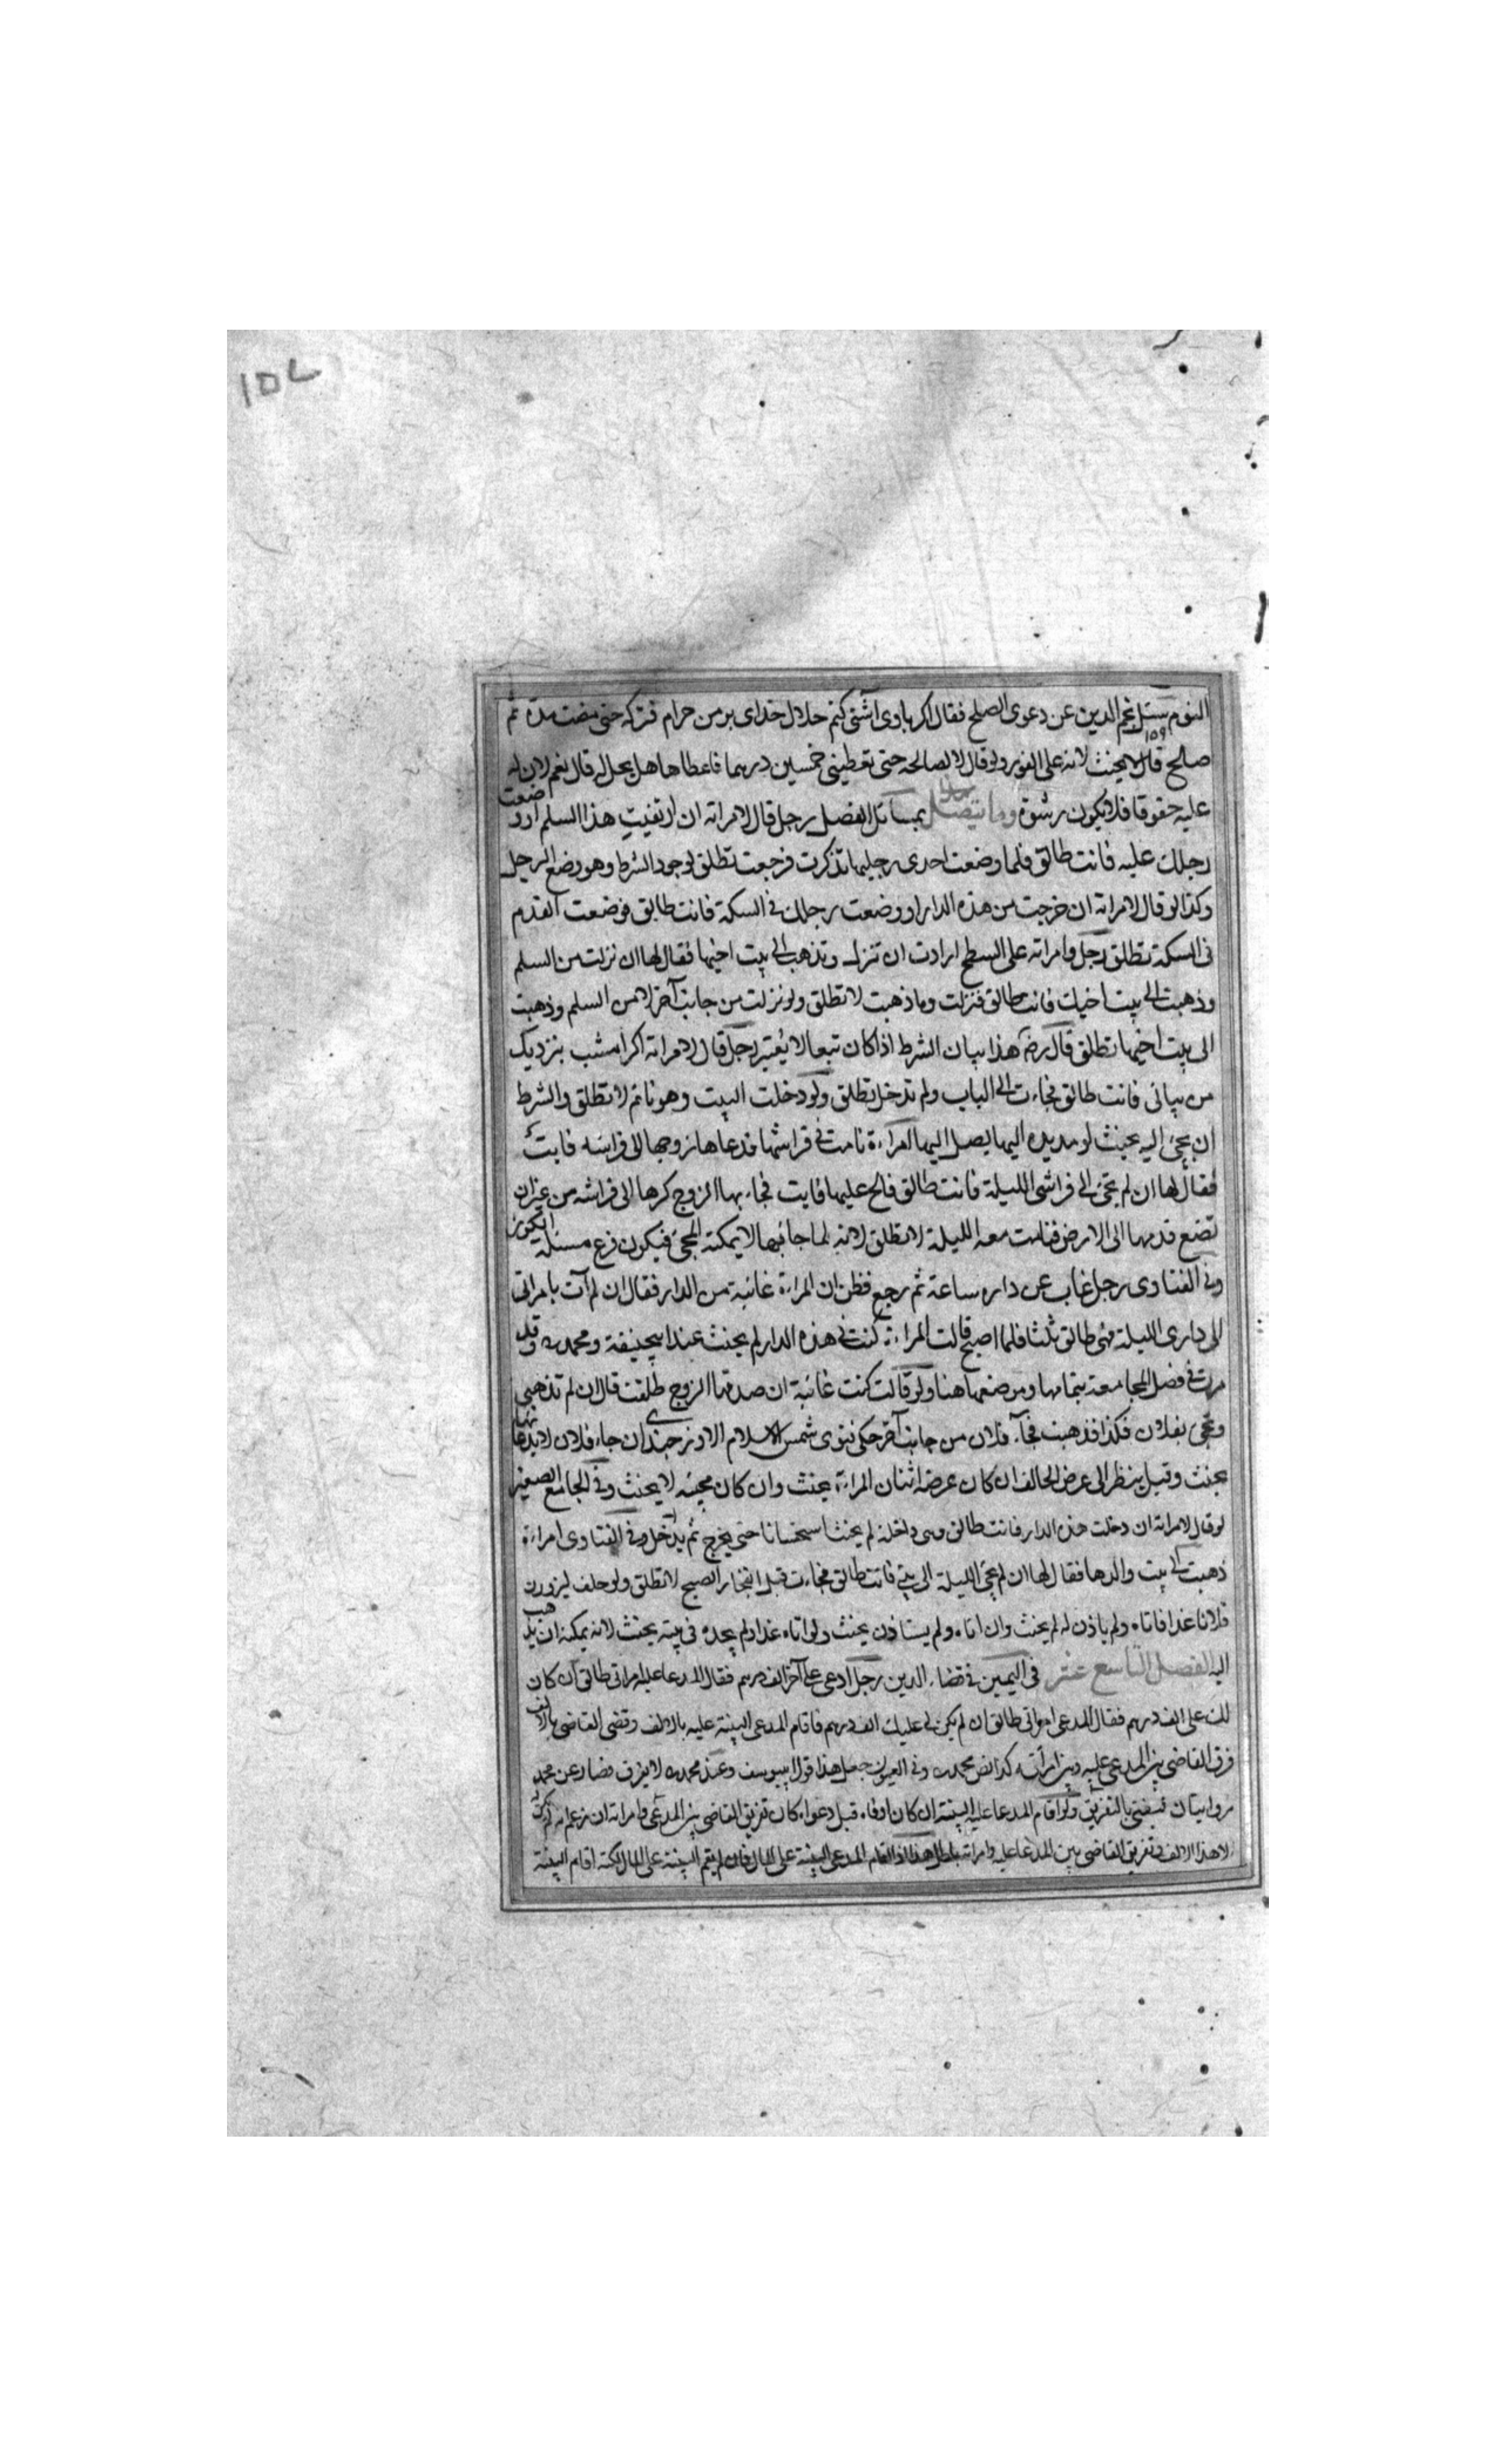 ١٥٧
النوم سئل نجم الدين عن دعوى الصلح فقال اكر باوى آشتى كنم حلال خداى بر من حرام فتركه حتى مضت مدة ثم
صالح قال لا يحنث لانه على الفور ولو قال لا اصالحه حتى تعطينى خمسين درهما فاعطاها هل يحل له قال نعم لان له
عليه حقوقا فلا يكون رشوة وما يتصل بمسائل الفصل رجل قال لامراته ان ارتقيت هذا السلم او وضعت
رجلك عليه فانت طالق فلما وضعت احدى رجليها تذكرت فرجعت تطلق لوجود الشرط وهو وضع الرجل
وكذا لو قال لامراته ان خرجت من هذه الدار او وضعت رجلك فى السكة فانت طالق فوضعت القدم
فى السكة تطلق رجل وامراته على السطح ارادت ان تنزل وتذهب الى بيت اختها فقال لها ان نزلت من السلم
وذهبت الى بيت اختك فانت طالق فنزلت وما ذهبت لا تطلق ولو نزلت من جانب آخر لا من السلم وذهبت
الى بيت اختها تطلق قال رضه هذا بيان الشرط اذا كان تبعا لا يعتبر رجل قال لامراته اكر امشب بنزديك
من بيائى فانت طالق فجاءت الى الباب ولم تدخل تطلق ولو دخلت البيت وهو نائم لا تطلق والشرط
ان تجئ اليه بحيث لو مد يده اليها يصل اليها امراءة نامت فى فراشها فدعاها زوجها الى فراشه فابت
فقال لها ان لم تجئ الى فراشى الليلة فانت طالق فالح عليها فابت فجاء بها الزوج كرها الى فراشه من غير ان
تضع قدمها الى الارض فنامت معه الليلة لا تطلق لانه لما جاء بها لا يمكنه المجئ فيكون فرع مسئلة الكوز
وفى الفتاوى رجل غاب عن داره ساعة ثم رجع فظن ان المراءة غائبة من الدار فقال ان لم آت بامراتى
الى دارى الليلة فهى طالق ثلثا فلما اصبح قالت المراءة كنت فى هذه الدار لم يحنث عند ابيحنيفة ومحمد ره وقد
مرت فى فصل المجامعة بتمامها وموضعها هنا ولو قالت كنت غائبة ان صدقها الزوج طلقت قال ان لم تذهبى
وتجى بفلان فكذا فذهبت فجاء فلان من جانب آخر حكى فتوى شمس الاسلام الاوزجندى ان جاء فلان لا بذهابها
يحنث وقيل ينظر الى غرض الحالف ان كان غرضه اتيان المراءة يحنث وان كان مجيئه لا يحنث وفى الجامع الصغير
لو قال لامراته ان دخلت هذه الدار فانت طالق وهى داخلة لم يحنث استحسانا حتى يخرج ثم يدخل وفى الفتاوى امراءة
ذهبت الى بيت والدها فقال لها ان لم تجئ الليلة الى بيتى فانت طالق فجاءت قبل انفجار الصبح لا تطلق ولو حلف ليزورن
فلانا غدا فاتاه ولم ياذن له لم يحنث وان اتاه ولم يستاذن يحنث ولو اتاه غدا ولم يجده فى بيته يحنث لانه يمكنه ان يذهب
اليه الفصل التاسع عشر فى اليمين فى قضاء الدين رجل ادعى على آخر الف درهم فقال المدعا عليه امراتى طالق ان كان
لك على الف درهم فقال المدعى امراتى طالق ان لم يكن لى عليك الف درهم فاقام المدعى البينة عليه بالالف وقضى القاضى بالالف
فرق القاضى بين المدعى عليه وبين امرأته كذا نص محمد ره وفى العيون جعل هذا قول ابييوسف وعند محمد ره لا يفرق فصار عن محمد
روايتان فيفتى بالتفريق ولو اقام المدعا عليه البينة ان كان اوفاه قبل دعواه كان تفريق القاضى بين المدعى وامراته ان زعم انه لم يكن
الا هذا الالف وتفريق القاضى بين المدعا عليه وامراته باطل هذا اذا اقام المدعى البينة على المال فان لم يقم البينة على المال لكنه اقام البينة